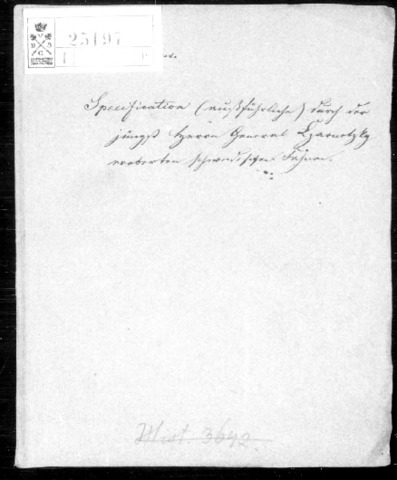 25197
Specification (ausführliche) durch der
jüngst Herrn General Czarnetzky
eroberten schwedischen Fahnen.
Hist. 3642